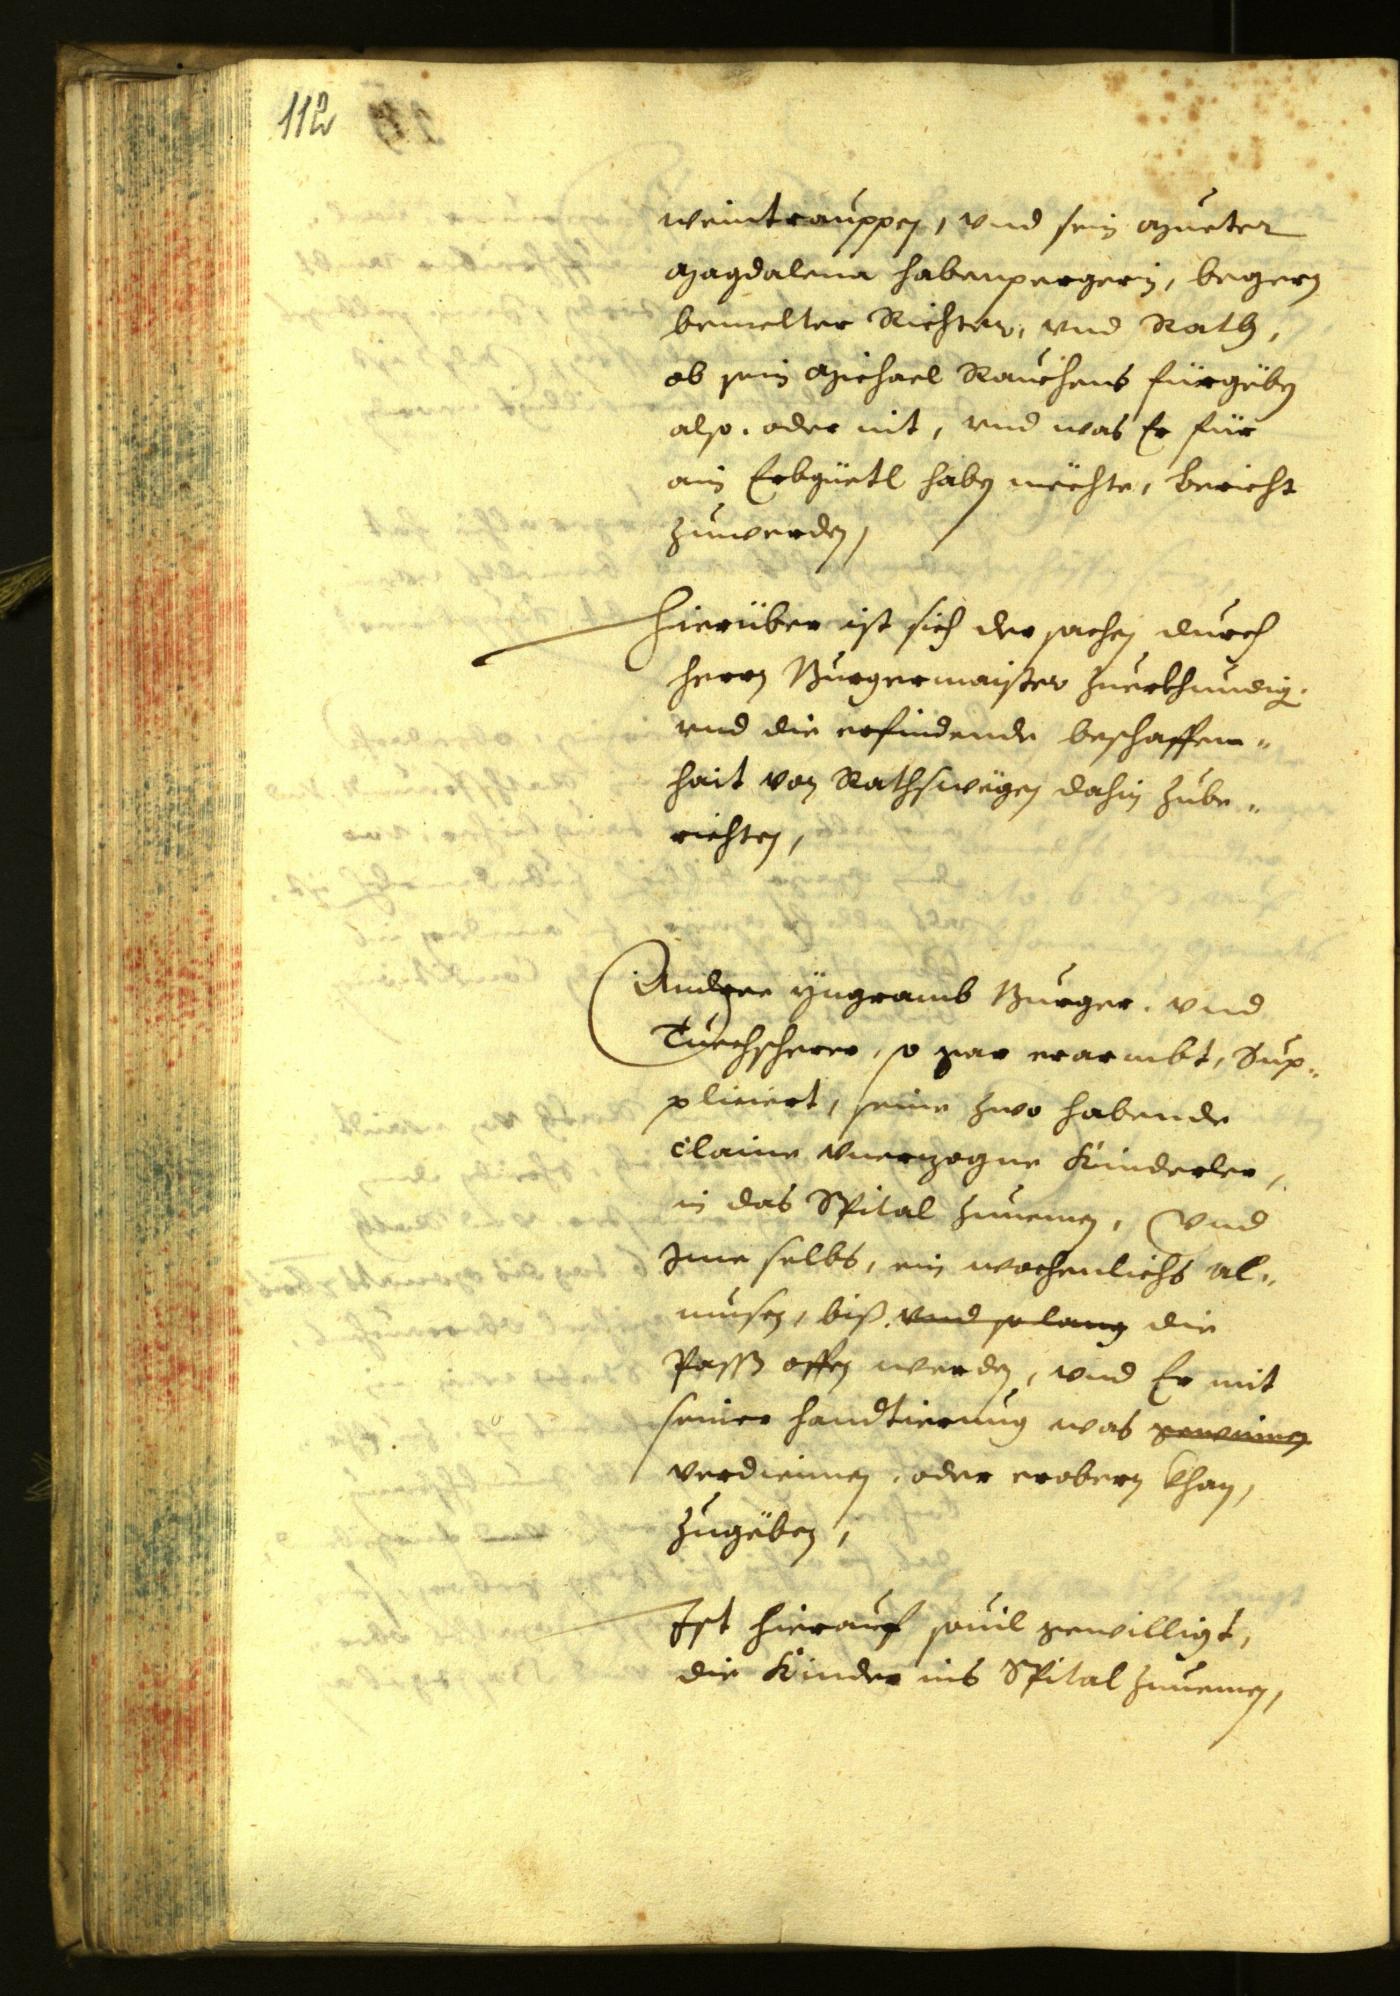 112
weintrauppen, vnd sein Mueter
Magdalena Habenpergerin, begern
bemelter Richter, vnd Rath,
ob sein Michael Rauchens fürgeben
also, oder nit, vnd was Er für
ain Erbgüetl haben möchte, bericht
zuwerden,
Hierüber ist sich der sachen durch
Herrn Burgermaister zuerkhundig.
vnd die erfindende beschaffen„
hait von Rathswegen dahin zube„
richten,
Andree Yngramb Burger, vnd
Tuechscherer, so gar erarmbt, Sup„
pliciert, seine zwo habende
claine vnerzogne Kinderlen,
in das Spital zunemen, Vnd
Jme selbs, ein wochenlichs al„
musen, biß vnd solang die
Pass offen werden, vnd Er mit
seiner handtierung was gewinnen
verdienen, oder erobern khan,
zugeben,
Ist hierauf souil gewilligt,
die Kinder ins Spital zunemen,